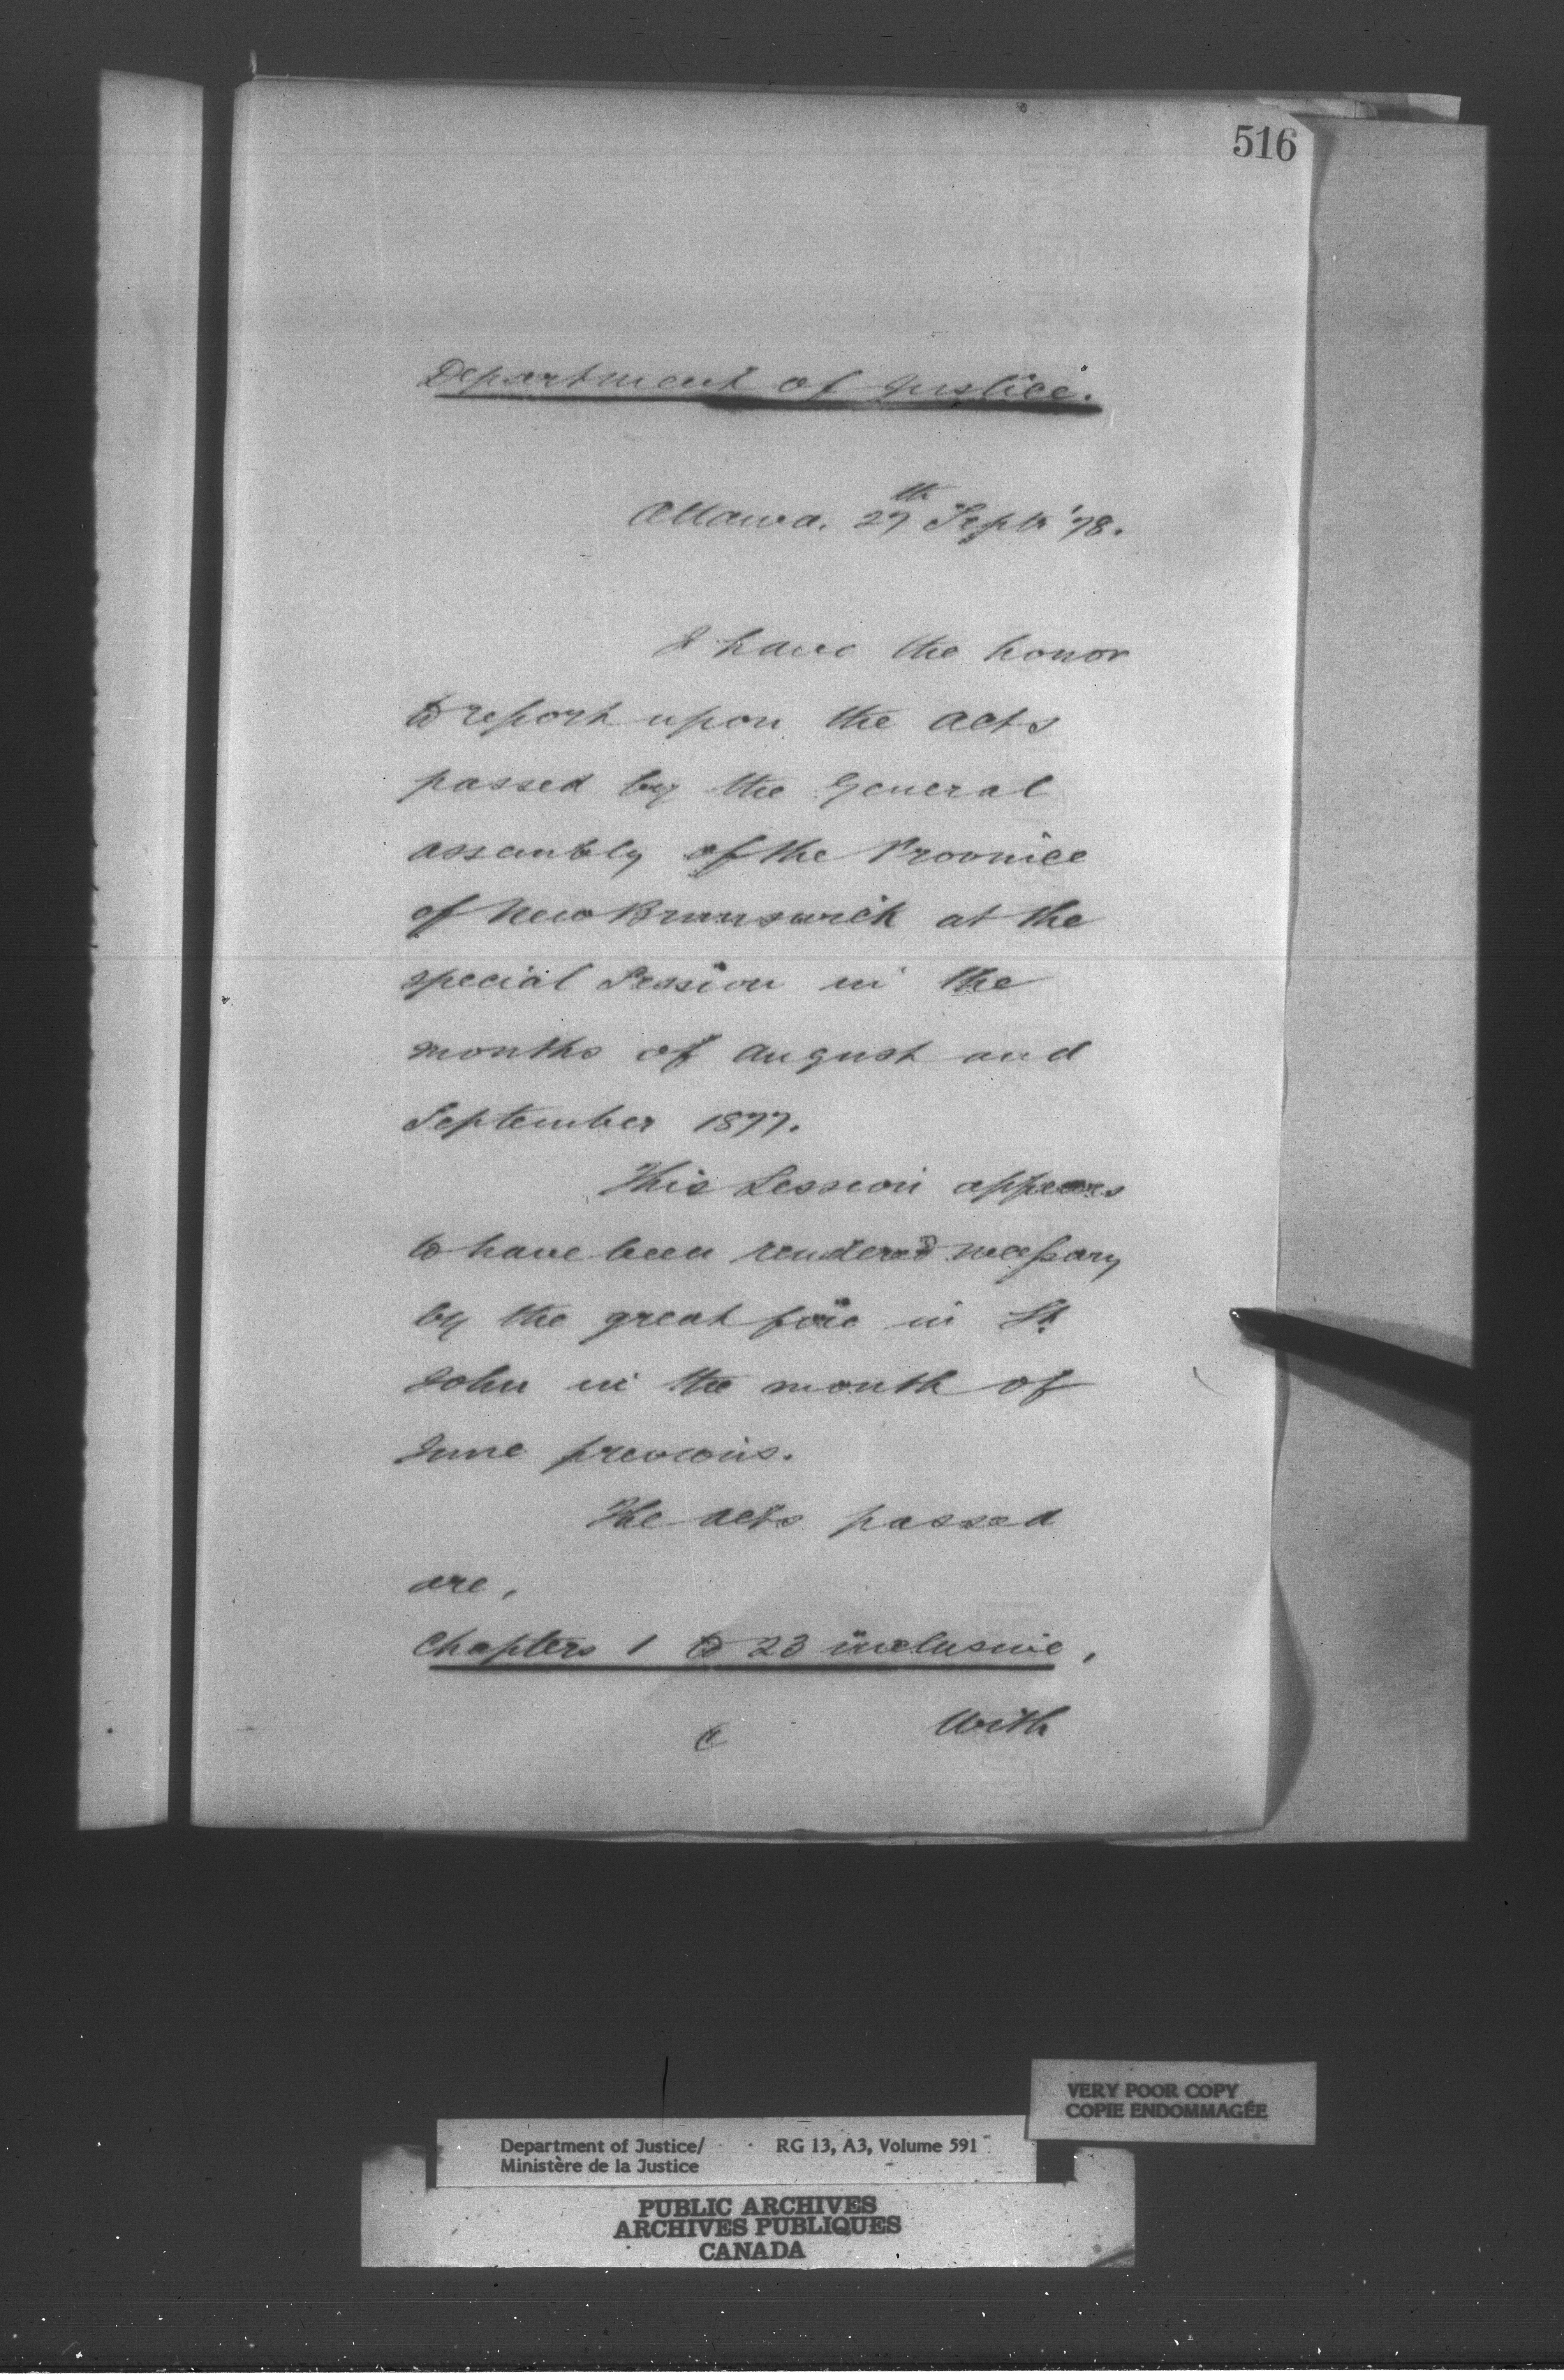 516
Department of Justice.
Ottawa. 27th Septr '78.
I have the honor
to report upon the acts
passed by the General
assembly of the Province
of New Brunswick at the
special Session in the
months of August and
September 1877.
This Session appears
to have been rendered necessary
by the great fire in St.
John in the month of
June previous.
The acts passed
are,
Chapters 1 to 23 inclusive,
With
VERY POOR COPY
COPIE ENDOMMAGÉE
Department of Justice/ RG 13, A3, Volume 591
Ministère de la Justice
PUBLIC ARCHIVES
ARCHIVES PUBLIQUES
CANADA